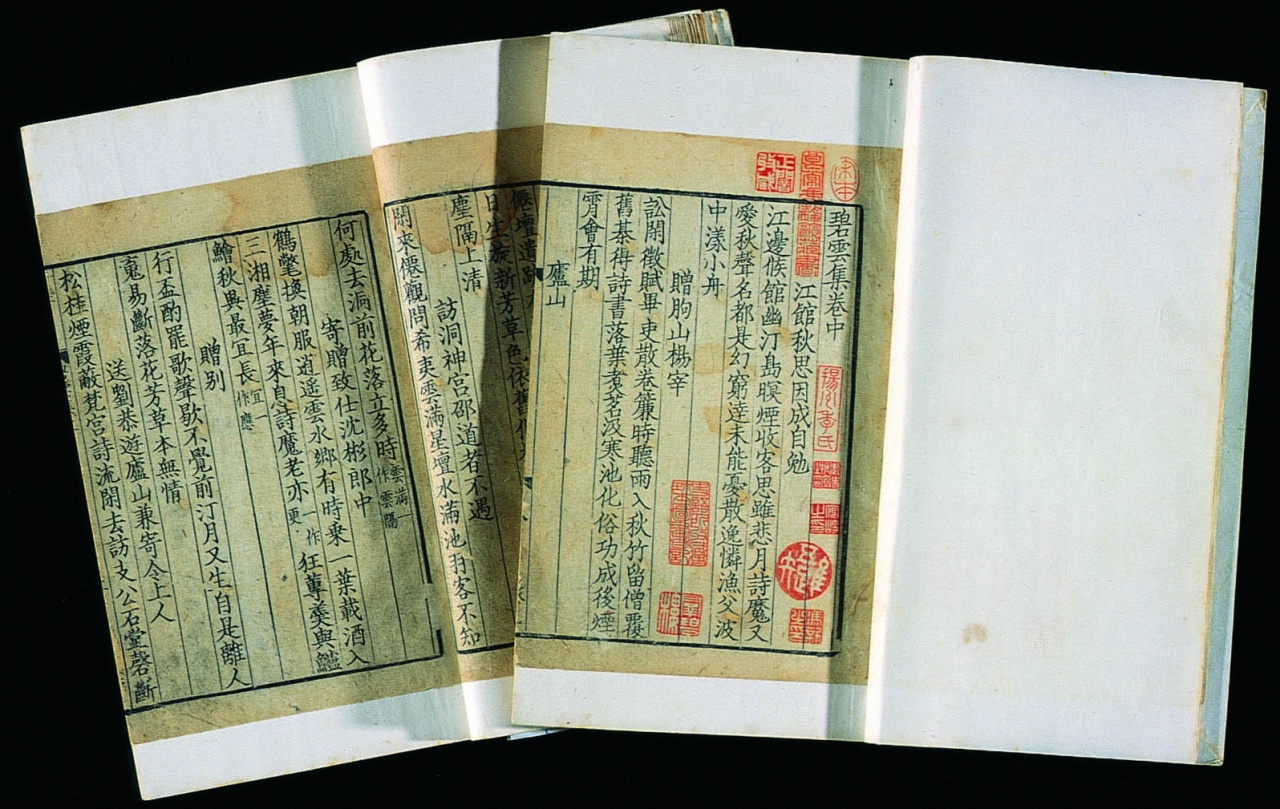 宋本
碧雲集卷中
江館秋思因成自勉
揚州季氏
江邊候館幽汀島暝煙收客思雖悲月詩魔又
愛秋聲名都是幻窮達未能憂散逸憐漁父波
中漾小舟
贈朐山楊宰
訟閑徵賦畢吏散卷簾時聽雨入秋竹留僧覆
舊棊得詩書落葉煮茗汲寒池化俗功成後煙
霄會有期
廬山
僊壇遺跡
新芳草色依舊
塵隔上清
訪洞神宮邵道者不遇
閑來僊觀問希夷雲滿星壇水滿池羽客不知
何處去洞前花落立多時雲滿一作雲陽
寄贈致仕沈彬郎中
鶴氅換朝服逍遥雲水鄉有時乗一葉載酒入
三湘塵夢年來息詩魔老亦一作更狂蓴羹與鱸
鱠秋興最宜長宜一作應
贈別
行盃酌罷歌聲歇不覺前汀月又生自是離人
䰟易斷落花芳草本無情
送劉恭遊廬山兼寄令上人
松桂煙霞蔽梵宮詩流閑去訪支公石堂磬斷